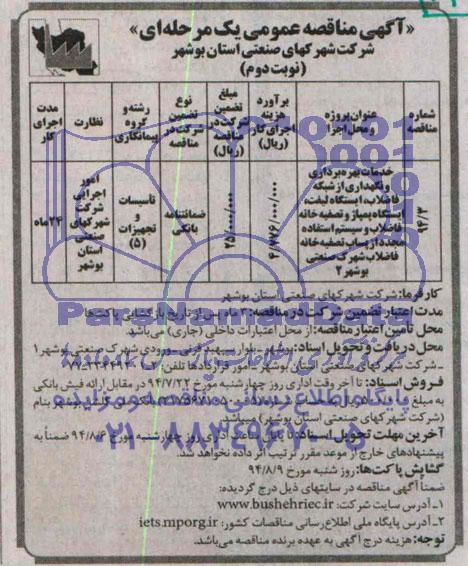 «آگهی مناقصه عمومی یک مرحله‌ای»
شرکت شهرکهای صنعتی استان بوشهر
(نوبت دوم)
شماره مناقصه
عنوان پروژه و محل اجرا
برآورد هزینه اجرای کار (ریال)
مبلغ تضمین شرکت در مناقصه (ریال)
نوع تضمین شرکت در مناقصه
رشته و گروه پیمانکاری
نظارت
مدت اجرای کار
۹۴/۳
خدمات بهره‌برداری
و نگهداری از شبکه
فاضلاب، ایستگاه لیفت،
ایستگاه پمپاژ و تصفیه خانه
فاضلاب و سیستم استفاده
مجدد از پساب تصفیه خانه
فاضلاب شهرک صنعتی
بوشهر ۲
ضمانتنامه بانکی
تأسیسات و تجهیزات (۵)
امور اجرایی شرکت شهرکهای صنعتی استان بوشهر
۲۴ماه
کارفرما: شرکت شهرکهای صنعتی استان بوشهر
مدت اعتبار تضمین شرکت در مناقصه: ۳ ماه پس از تاریخ بازگشایی پاکت‌ها
محل تأمین اعتبار مناقصه: از محل اعتبارات داخلی (جاری) می‌باشد.
محل دریافت و تحویل اسناد: بوشهر ـ بلوار سپهبد قرنی ـ ورودی شهرک صنعتی بوشهر ۱
ـ شرکت شهرکهای صنعتی استان بوشهر ـ امور قراردادها تلفن
فروش اسناد: تا آخر وقت اداری روز چهارشنبه مورخ ۹۴/۷/۲۲ در مقابل ارائه فیش بانکی
به مبلغ بوشهر بنام
(شرکت شهرکهای صنعتی استان بوشهر) میباشد.
آخرین مهلت تحویل اسناد: تا پایان ساعت اداری روز چهارشنبه مورخ ۹۴/۸/۶ ضمناً به
پیشنهادهای خارج از موعد مقرر ترتیب اثر داده نخواهد شد.
گشایش پاکت‌ها: روز شنبه مورخ ۹۴/۸/۹
ضمناً آگهی مناقصه در سایتهای ذیل درج گردیده:
۱ـ آدرس سایت شرکت: www.bushehriec.ir
۲ـ آدرس پایگاه ملی اطلاع رسانی مناقصات کشور: iets.mporg.ir
توجه: هزینه درج آگهی به عهده برنده مناقصه می‌باشد.
پایگاه اطلاع رسانی مناقصه و مزایده
۰۲۱-۸۸۳۴۹۶۷۰-۵